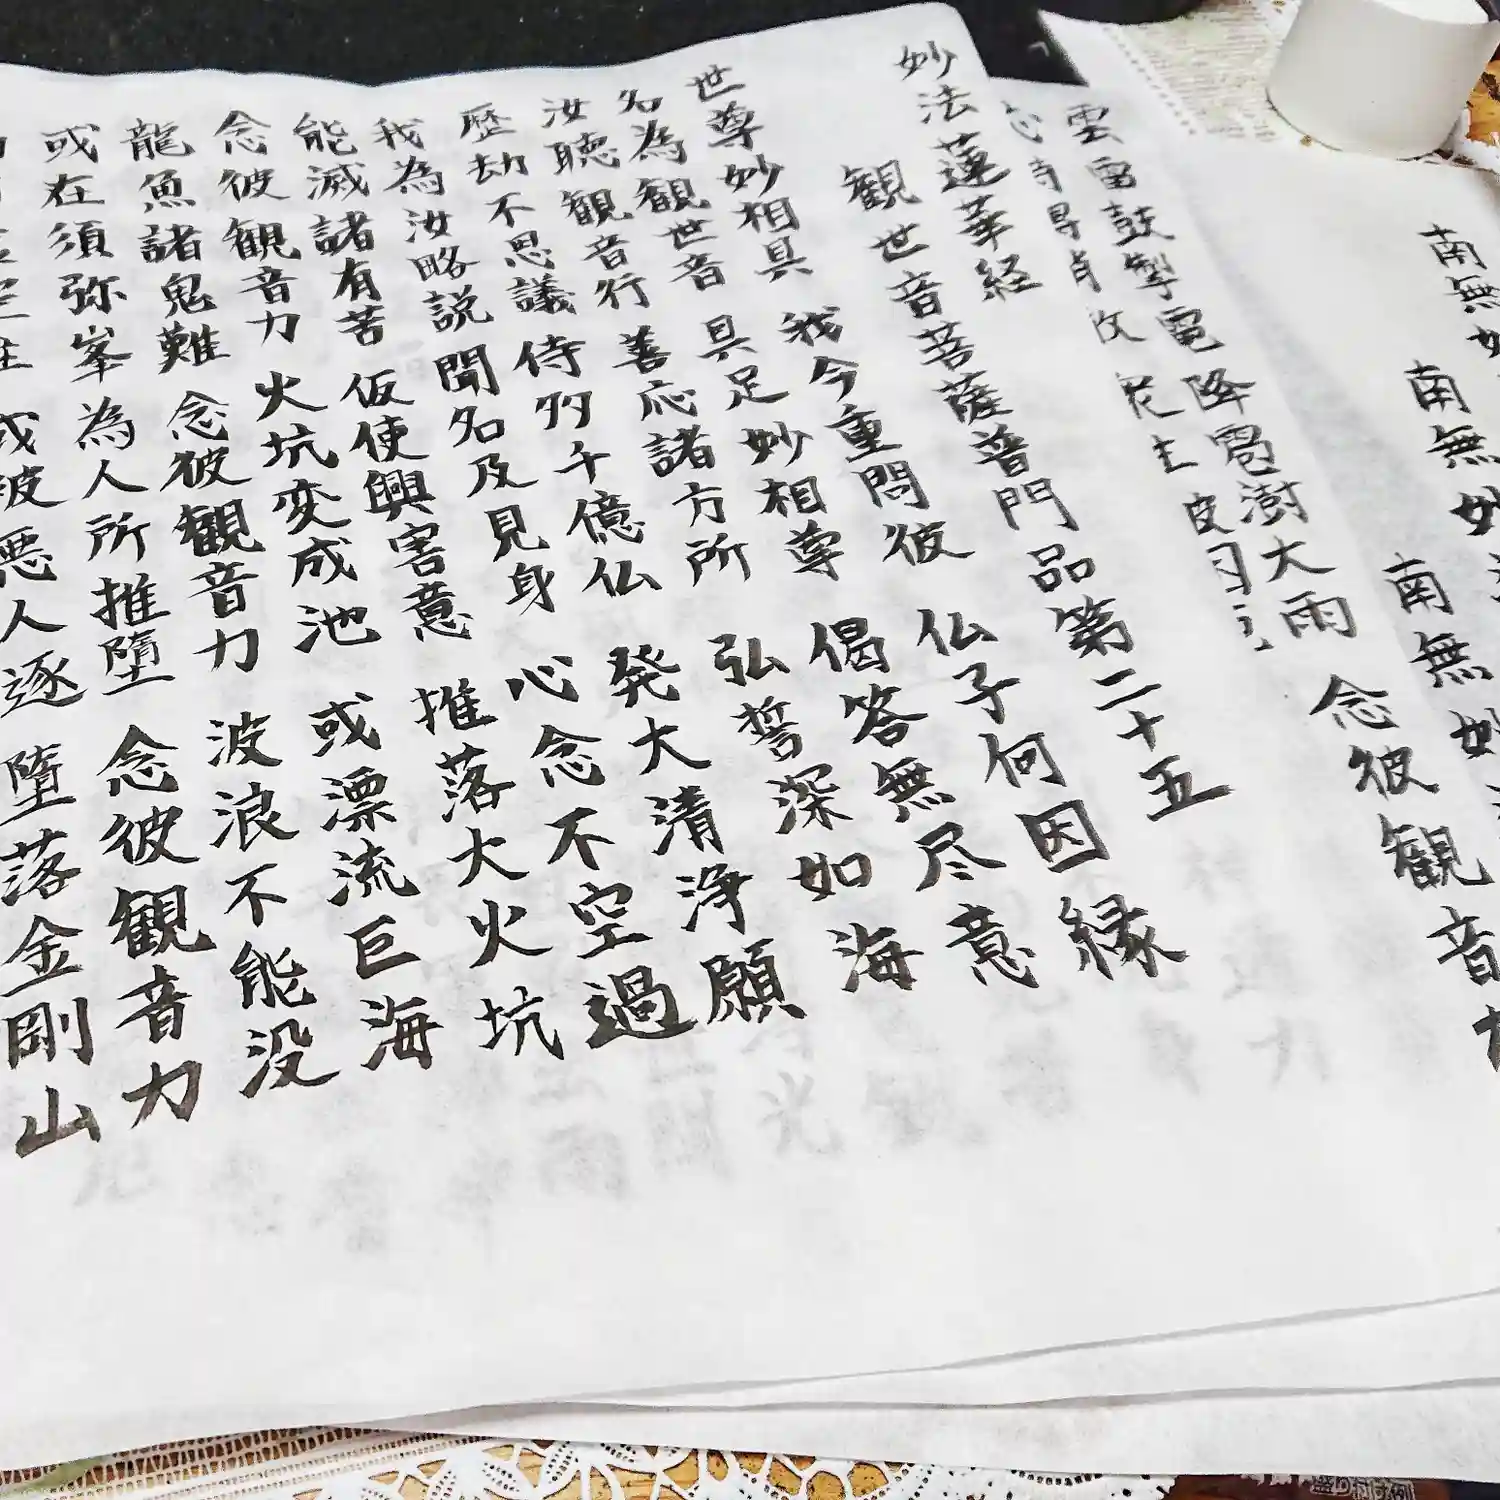 南無妙
南無妙
南無妙
雲雷鼓掣電 降雹澍大雨 念彼観音
妙法蓮華経
観世音菩薩普門品第二十五
世尊妙相具 我今重問彼 仏子何因縁
名為観世音 具足妙相尊 偈答無尽意
汝聴観音行 善応諸方所 弘誓深如海
歴劫不思議 侍多千億仏 発大清浄願
我為汝略説 聞名及見身 心念不空過
能滅諸有苦 仮使興害意 推落大火坑
念彼観音力 火坑変成池 或漂流巨海
龍魚諸鬼難 念彼観音力 波浪不能没
或在須弥峯 為人所推墮 念彼観音力
被悪人逐 墮落金剛山